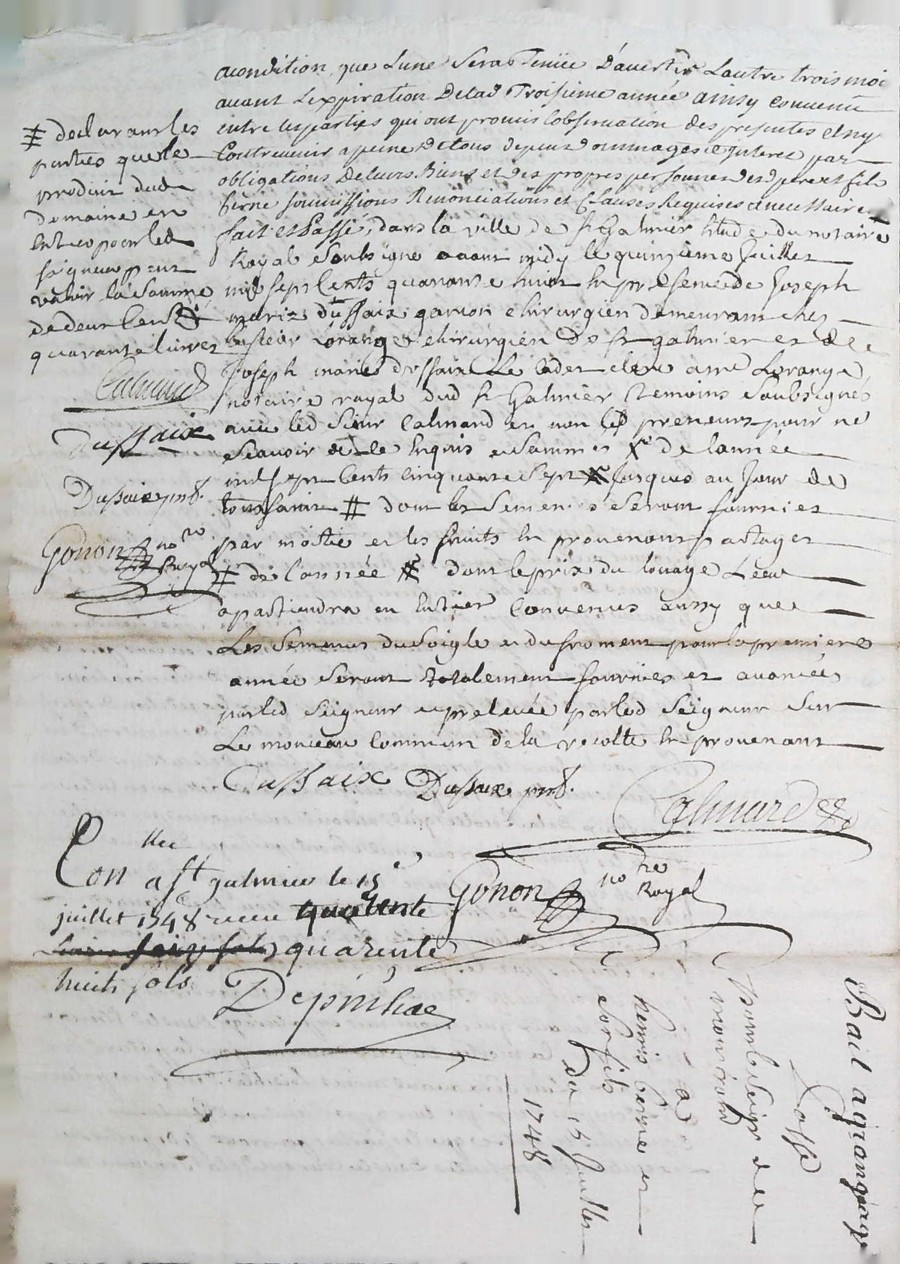 acondition que Lune Sera Tenüe D'avertir Lautre trois moi
avant Lexpiration De lad Troisieme année ainsy convenu
entre les parties qui ont promis lobservation des presentes et ny
Contrevenir a peine de tous depens dommages et Interet par
obligations De leurs Biens et des propres personnes desd pere et fils
soumissions Renonciations et Clauses Requises et necessaire
fait et Passé dans la ville de st Galmier Etude du notaire
Royal Soubsigné avant midy le quinzieme Juillet
mil sept cents quarante huit En presence de Joseph
marie dussaix garcon chirurgien demeurant ches
sieur Lorange chirurgien De st galmier et de
Joseph marie dussaix Le Cadet clerc a me Lorange
notaire royal dud st Galmier temoins Soubsignés
avec led Sieur Calmard et non les preneurs pour ne
scavoir de ce Enquis et Sommés de lannée
mil sept cents cinquante Sept Jusques au Jour de
toussaint # dont les Semences Seront fournies
par moitie et les fruits En provenant partager
de lannée dont le prix du louage
apartiendra en Entier Convenus aussy que
Les Semences du Soigle et du froment pour la premiere
année Seront totalement fournies et avancées
par led Seigneur et prelevée par led Seigneur Sur
Le monceau Commun de la recolte En provenant
Dussaix Dussaix pnt.
Calmard
Gonon no re Royal
# declarant les
parties que le
produit dud
Domaine en
Entier pour led
seigneur peut
valoir la Somme
de deux Cents
quarante livres
Calmard
Dussaix
Dussaix pnt.
Gonon no re
Royal
Con llé a st galmier le 15e
juillet 1748 receu
quarente
huit sols
Depinhac
Bail a grangeage
Passé
par le Seigr de
a
henris et
son fils
du 15 Juillet
1748